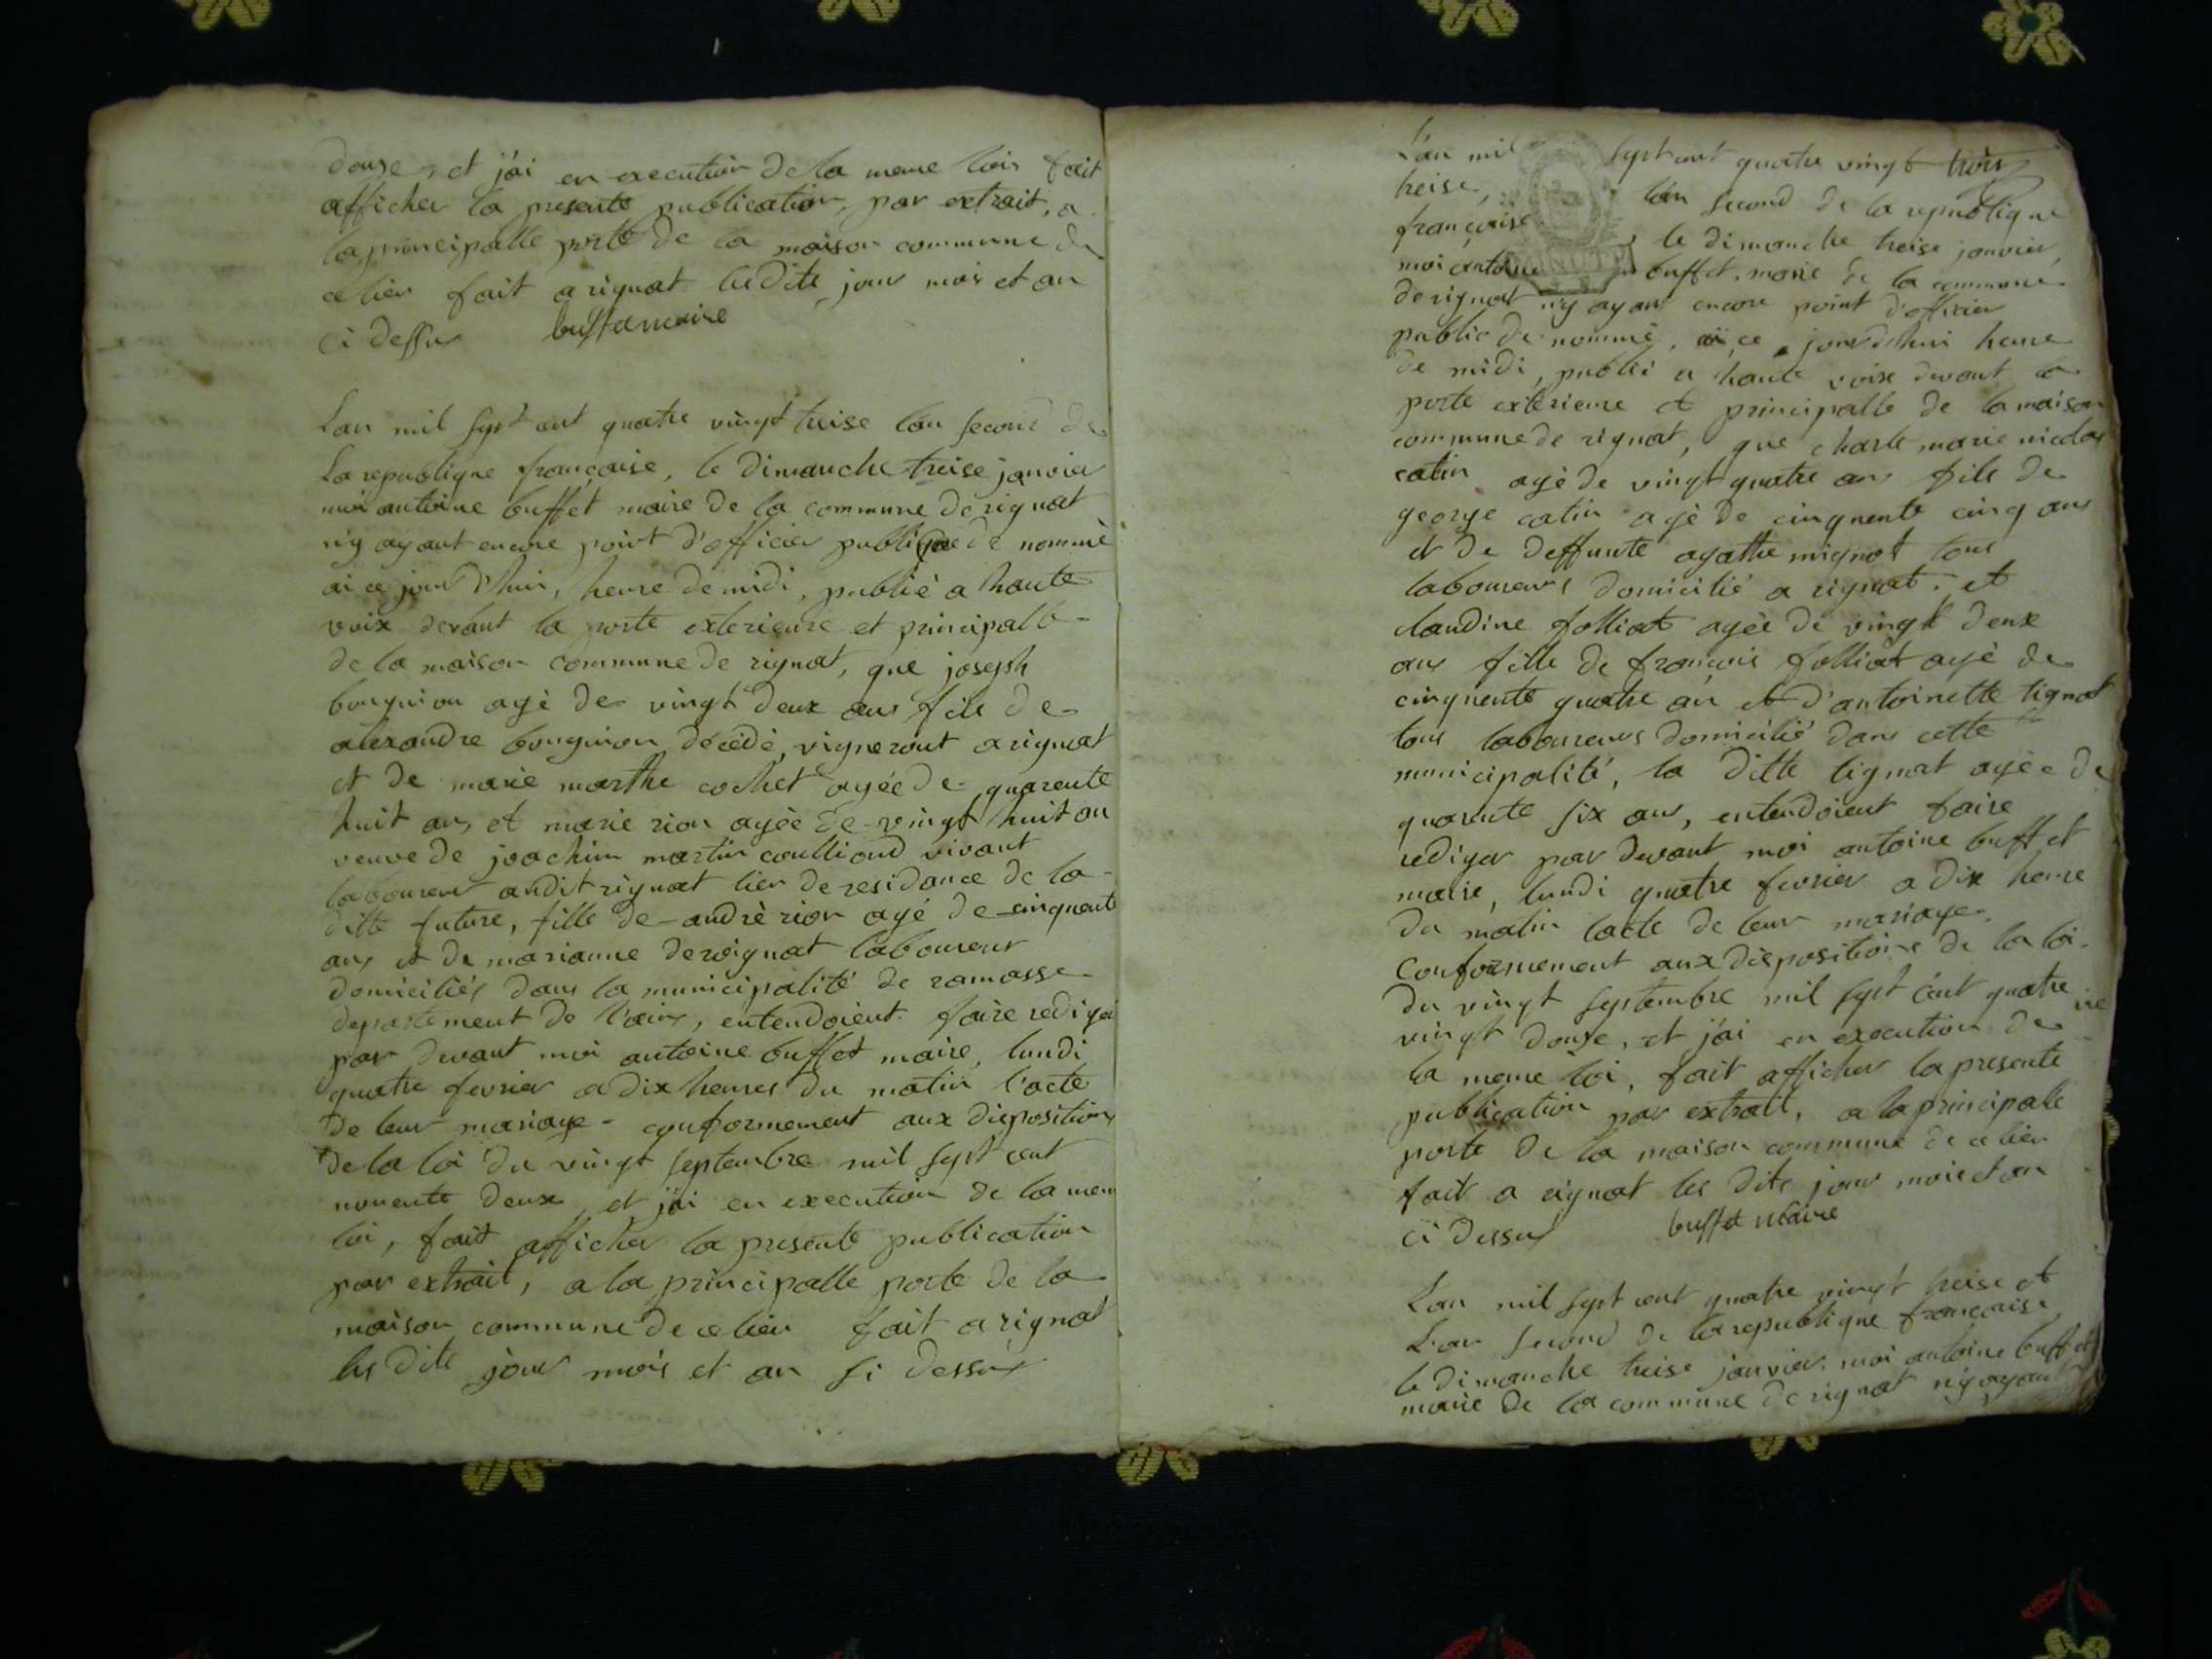 douse, et j'ai en execution de la meme lois fait
afficher la presente publication, par extrait, a
la principalle porte de la maison commune de
ce lieu fait a rignat les dits jour mois et an
ci dessu buffet maire
L'an mil sept cent quatre vingt treise l'an second de
La republique française, le dimanche treise janvier
moi antoine buffet maire de la commune de rignat
n'y ayant encore point d'officier publique de nommé
ai ce jour d'hui, heure de midi, publié a haute
voix devant la porte exterieure et principalle
de la maison commune de rignat, que joseph
bouguion agé de vingt deux ans fils de
alexandre bouguion décédé, vigneront a rignat
et de marie marthe cochet agée de quarente
huit ans, et marie rion agée de vingt huit an
veuve de joachim martin coullioud vivant
laboureur audit rignat lieu de residance de la
ditte future, fille de andrè rion agé de cinquente
ans et de marianne deroignat laboureur
domiciliés dans la municipalité de ramasse
departement de l'ain, entendoient faire rediger
par devant moi antoine buffet maire, lundi
quatre fevrier a dix heures du matin l'acte
de leur mariage - conformement aux disposition
de la loi du vingt septembre mil sept cent
nonente deux, et j'ai en execution de la mem
loi, fait afficher la presente publication
par extrait, a la principalle porte de la
maison commune de ce lieu fait a rignat
les dits jour mois et an si dessus
L'an mil sept cent quatre vingt trois
treise, l'an second de la republique
française, le dimanche treise janvier,
moi antoine buffet, marie de la commune
de rignat n'y ayant encore point d'officier
public de nommé, ai ce jourdhui heure
de midi, publié a haute voix devant la
porte exterieure et principalle de la maison
commune de rignat, que charle marie nicolas
catin agé de vingt quatre ans fils de
george catin agè de cinquente cinq ans
et de deffunte agathe mignot tous
laboureurs domicilié a rignat, et
claudine folliat agèe de vingt deux
ans fille de françois folliat agé de
cinquente quatre an et d'antoinette tignat
tous laboureurs domicilié dans cette
municipalité, la ditte tignat agée de
quarente six ans, entendoient faire
rediger par devant moi antoine buffet
maire, lundi quatre fevrier a dix heure
du matin lacte de leur mariage.
Conformement aux dispositions de la loi
du vingt septembre mil sept cent quatre
vingt douse, et j'ai en execution de
la meme loi, fait afficher la presente
publication par extrait, a la principale
porte de la maison commune de ce lieu
fait a rignat les dits jour mois et an
ci dessus buffet maire
L'an mil sept cent quatre vingt treise et
L'an second de la republique française,
le dimanche treise janvier, moi antoine buffet
maire de la commune de rignat n'y ayant